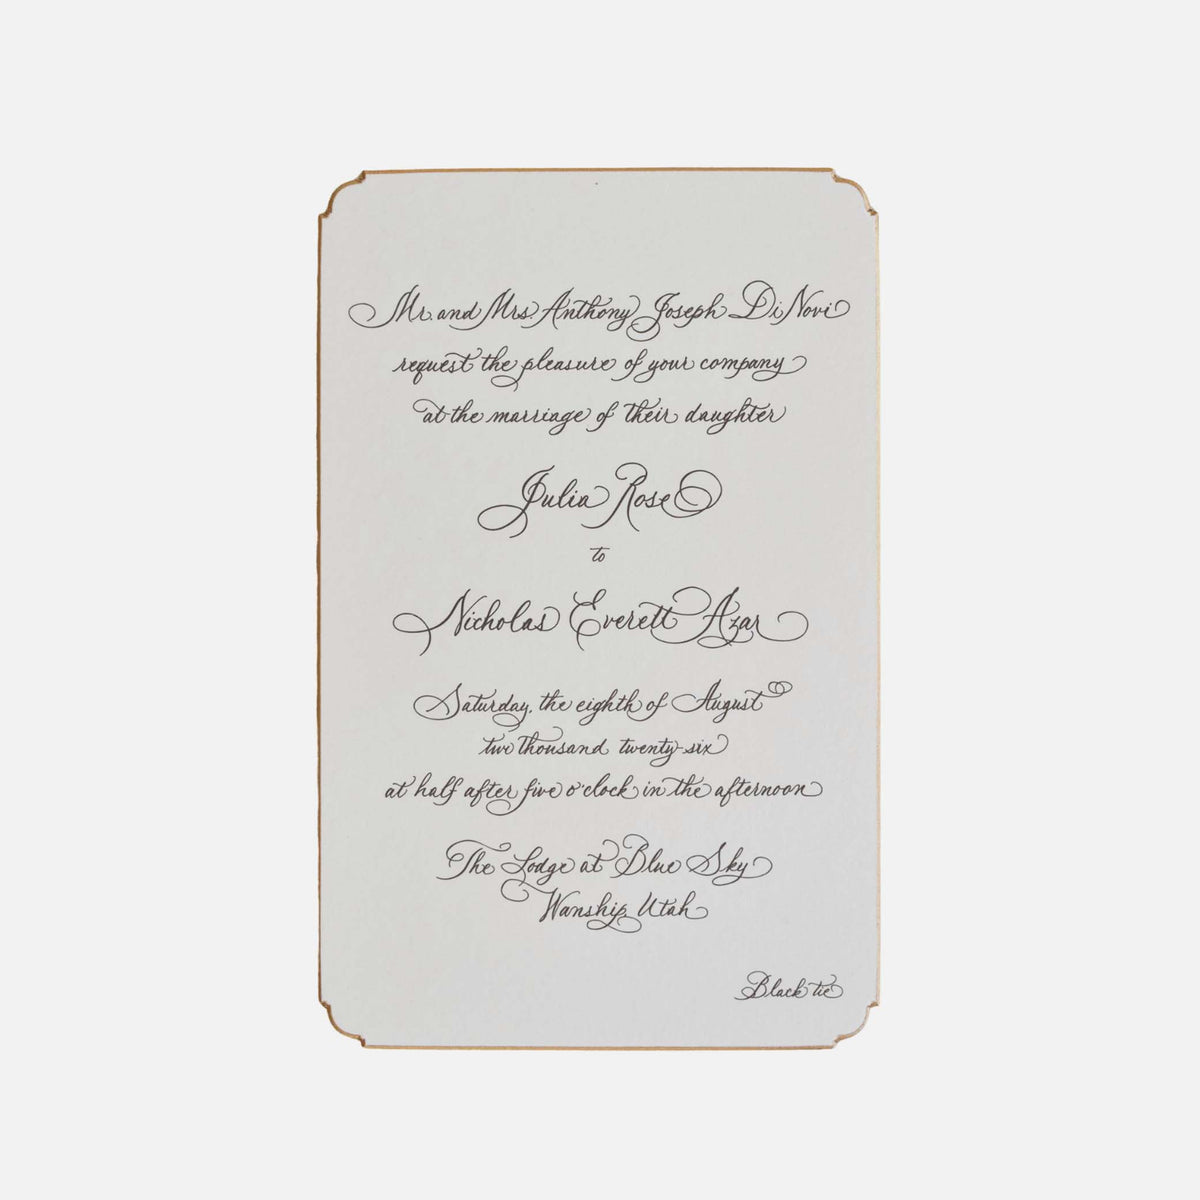 Mr. and Mrs. Anthony Joseph Di Novi
request the pleasure of your company
at the marriage of their daughter
Julia Rose
to
Nicholas Everett Azar
Saturday, the eighth of August
two thousand twenty-six
at half after five o'clock in the afternoon
The Lodge at Blue Sky
Wanship, Utah
Black tie